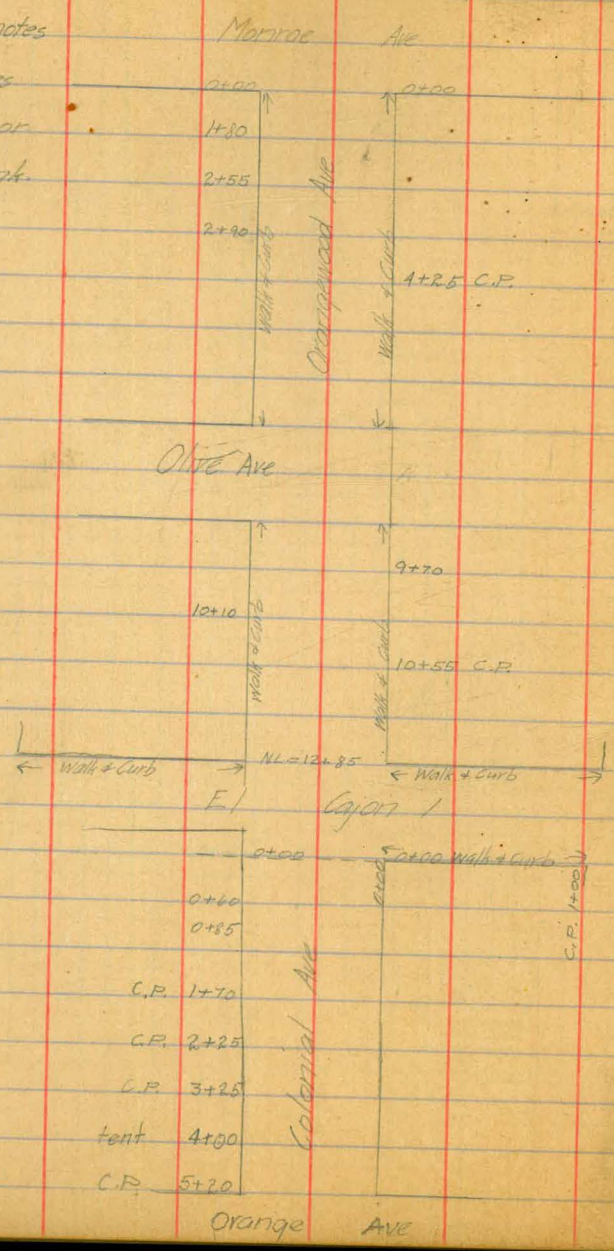 notes
Monroe Ave
0+00 0+00
1+80
2+55
2+90
Walk & Curb
Orangewood Ave
Walk & Curb
4+25 C.P.
Olive Ave
9+70
10+10
Walk & Curb
Walk & Curb
10+55 C.P.
NL=12+85
← Walk & Curb →
← Walk & Curb →
El Cajon
0+00
0+00
0+00 Walk & Curb
C.P. 1+00
0+60
0+85
C.P. 1+70
C.P. 2+25
C.P. 3+25
tent 4+00
C.P. 5+20
Colonial Ave
Orange Ave